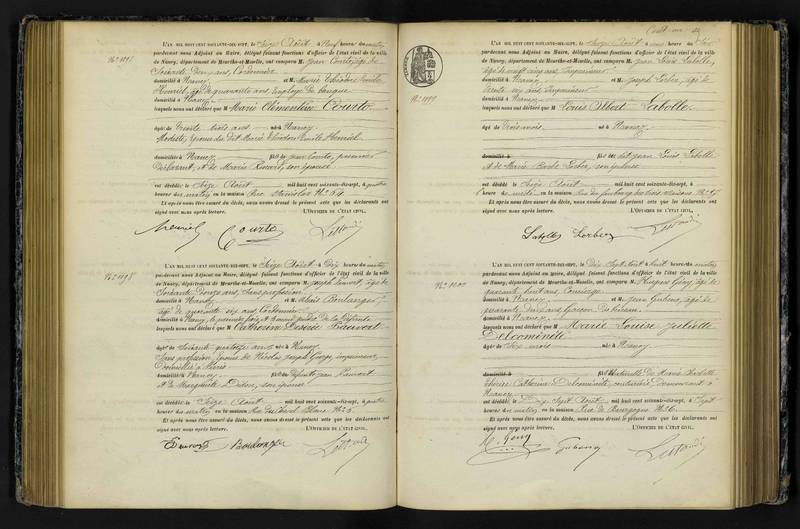 No 1197
L'AN MIL HUIT CENT SOIXANTE-DIX-SEPT, le Seize Août à Neuf heures du matin
pardevant nous Adjoint au Maire, délégué faisant fonctions d'officier de l'état civil de la ville
de Nancy, département de Meurthe-et-Moselle, ont comparu M. Jean Courte, âgé de
Soixante ans, Cordonnier
domicilié à Nancy et M. Marie Théodore Emile
Henriet, âgé de quarante ans, Employé de banque
domicilié à Nancy
lesquels nous ont déclaré que Marie Clémentine Courte
âgée de trente trois ans née à Nancy
Modiste, épouse du dit Marie Théodore Emile Henriet
domiciliée à Nancy fille de Jean Courte, premier
Déclarant, et de Marie son épouse
est décédée le Seize Août mil huit cent soixante-dix-sept, à quatre
heures du matin en la maison Rue Stanislas No 54
Et après nous être assuré du décès, nous avons dressé le présent acte que les déclarants ont
signé avec nous après lecture. L'OFFICIER DE L'ÉTAT CIVIL,
Henriet Courte
No 1198
L'AN MIL HUIT CENT SOIXANTE-DIX-SEPT, le Seize Août à Dix heures du matin
pardevant nous Adjoint au Maire, délégué faisant fonctions d'officier de l'état civil de la ville
de Nancy, département de Meurthe-et-Moselle, ont comparu M. Joseph âgé de
Soixante Douze ans, Sans profession
domicilié à Nancy et M. Alexis Boulanger
âgé de quarante six ans, Cordonnier
domicilié à Nancy, le premier frère et
lesquels nous ont déclaré que Catherine Désirée
âgée de Soixante quatorze ans née à Nancy
Sans profession, épouse de Nicolas Joseph imprimeur,
Domicilié à Paris
domiciliée à Nancy fille de Défunts Jean
et de Marguerite Didon, son épouse
est décédée le Seize Août mil huit cent soixante-dix-sept, à quatre
heures du matin en la maison Rue No 3
Et après nous être assuré du décès, nous avons dressé le présent acte que les déclarants ont
signé avec nous après lecture. L'OFFICIER DE L'ÉTAT CIVIL,
Boulanger
No 1199
L'AN MIL HUIT CENT SOIXANTE-DIX-SEPT, le Seize Août à heures du Soir
pardevant nous Adjoint au Maire, délégué faisant fonctions d'officier de l'état civil de la ville
de Nancy, département de Meurthe-et-Moselle, ont comparu M. Jean Louis Labolle,
âgé de vingt cinq ans, Imprimeur
domicilié à Nancy et M. Joseph âgé de
trente six ans, Imprimeur
domicilié à Nancy
lesquels nous ont déclaré que Louis Albert Labolle
âgé de Trois mois né à Nancy
domicilié à fils de dit Jean Louis Labolle
et de Marie son épouse
est décédé le Seize Août mil huit cent soixante-dix-sept, à
heures du matin en la maison Rue du faubourg des trois maisons
Et après nous être assuré du décès, nous avons dressé le présent acte que les déclarants ont
signé avec nous après lecture. L'OFFICIER DE L'ÉTAT CIVIL,
Labolle
No 1200
L'AN MIL HUIT CENT SOIXANTE-DIX-SEPT, le Dix Sept Août à huit heures du matin
pardevant nous Adjoint au Maire, délégué faisant fonctions d'officier de l'état civil de la ville
de Nancy, département de Meurthe-et-Moselle, ont comparu M. âgé de
quarante huit ans, Concierge
domicilié à Nancy et M. Jean âgé de
quarante ans, Garçon de bureau
domicilié à Nancy
lesquels nous ont déclaré que Marie Louise Juliette
Delcominète
âgée de Six mois née à Nancy
domicilié à fille naturelle de Marie Charlotte
Thérèse Catherine Delcominète, Demeurant à
Nancy
est décédée le Dix Sept Août mil huit cent soixante-dix-sept, à Sept
heures du matin en la maison Rue de Bourgogne No 6
Et après nous être assuré du décès, nous avons dressé le présent acte que les déclarants ont
signé avec nous après lecture. L'OFFICIER DE L'ÉTAT CIVIL,